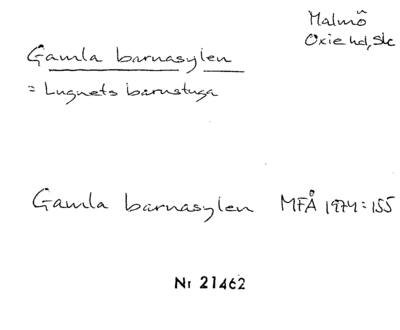 Malmö
Oxie hd, Sk
Gamla barnasylen
= Lugnets barnstuga
Gamla barnasylen MFÅ 1974:155
Nr 21462